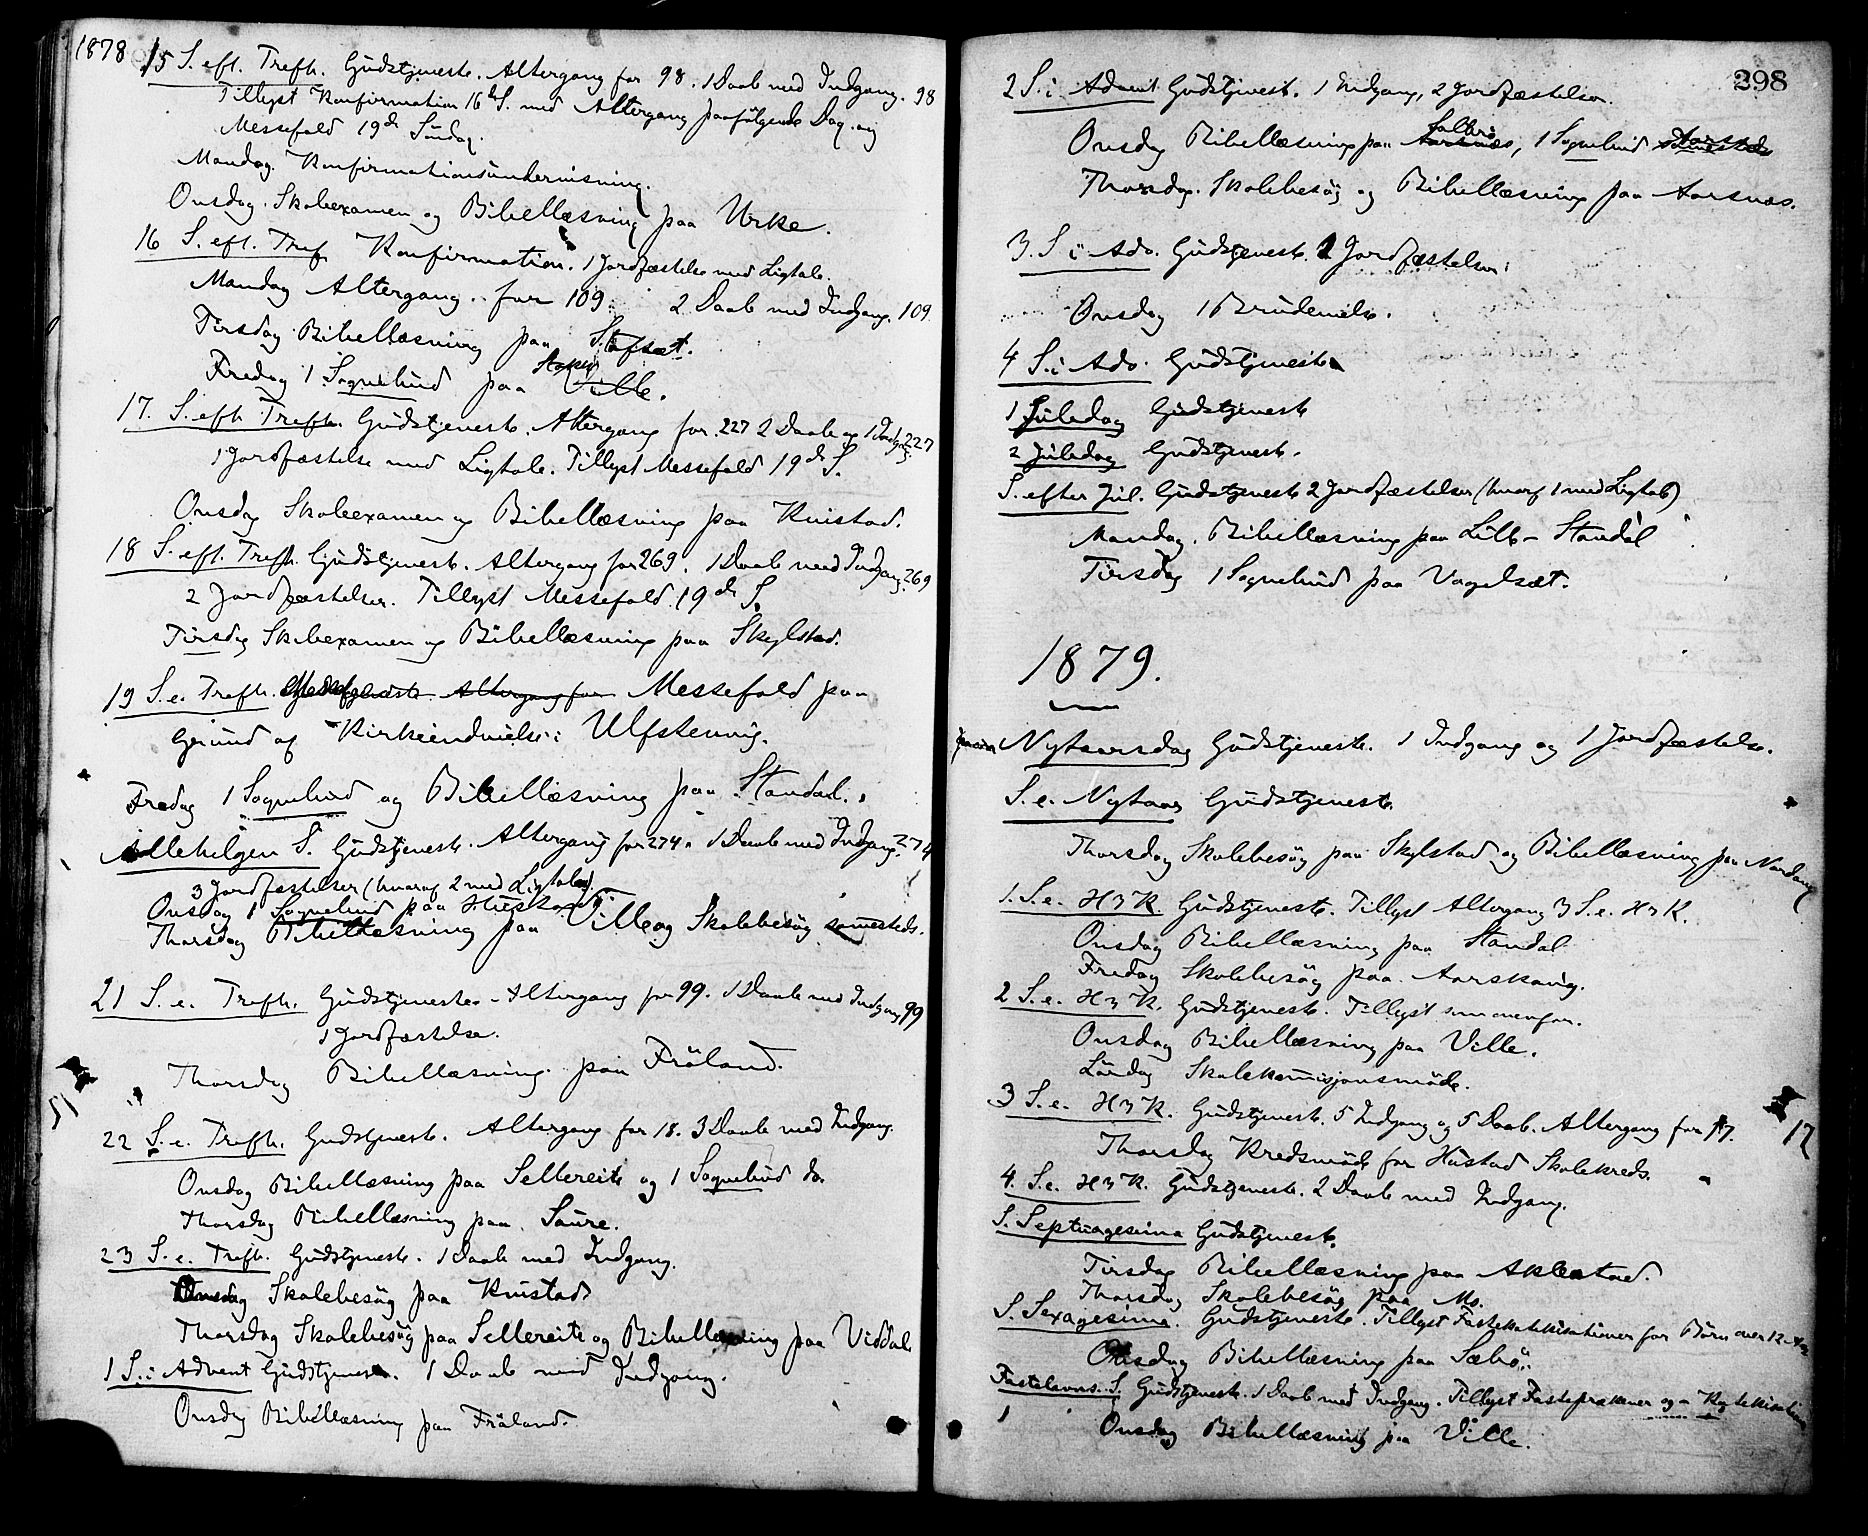 1878
15 S. eft. Trefh. Gudstjeneste. Altergang for 98. 1 Daab med Indgang. 98
Tillyst Konfirmation 16de S. med Altergang paafölgende Dag. og
Messefald 19de Søndag.
Mandag. Konfirmationsundervisning.
Onsdag. Skoleexamen og Bibellæsning paa Urke.
16 S. eft. Tref. Konfirmation. 1 Jordfæstelse med Ligtale.
Mandag Altergang for 109. 2 Daab med Indgang. 109.
Tirsdag Bibellæsning paa
Fredag 1 Sognebud paa Ville.
17. S. efth. Trefh. Gudstjeneste. Altergang for 227 2 Daab og 1 Indg. 227
1 Jordfæstelse med Ligtale. Tillyst Messefald 19de S.
Onsdag Skoleexamen og Bibellæsning paa Knistad.
18 S. eft. Trefh. Gudstjenest. Altergang for 269. 1 Daab med Indgang. 269
2 Jordfæstelser. Tillyst Messefald 19de S.
Tirsdag Skoleexamen og Bibellæsning paa Skylstad.
19 S. e. Trefh. Altergang for Messefald paa
Grund af Kirkeindvielse i Ulfstenvig.
Fredag 1 Sognebud og Bibellæsning paa Standal.
Allehelgen S. Gudstjeneste. Altergang for 274. 1 Daab med Indgang. 274
3 Jordfæstelser (hvoraf 2 med Ligtale).
Onsdag 1 Sognebud paa Hustad
Thorsdag Bibellæsning paa Ville og Skolebesög sammesteds.
21 S. e. Trefh. Gudstjeneste. Altergang for 99. 1 Daab med Indgang 99
1 Jordfæstelse.
Thorsdag Bibellæsning paa Fröland.
22 S. e. Trefh. Gudstjeneste. Altergang for 18. 3 Daab med Indgang.
Onsdag Bibellæsning paa Sellereite og 1 Sognebud do.
Thorsdag Bibellæsning paa Saure.
23 S. e. Trefh. Gudstjeneste. 1 Daab med Indgang.
Onsdag Skolebesög paa Knistad
Thorsdag Skolebesög paa Sellereite og Bibellæsning paa Viddal
1 S. i Advent Gudstjeneste. 1 Daab med Indgang.
Onsdag Bibellæsning paa Fröland.
298
2 S. i Advent Gudstjenest. 1 Indgang, 2 Jordfæstelser.
Onsdag Bibellæsning paa Aarsnæs, 1 Sognebud
Thorsdag. Skolebesög og Bibellæsning paa Aarsnæs.
3. S i Adv. Gudstjeneste. 2 Jordfæstelser.
Onsdag 1 Brudevielse.
4 S. i Adv. Gudstjeneste
1 Juledag Gudstjeneste
2 Juledag Gudstjeneste.
S. efter Jul. Gudstjeneste 2 Jordfæstelser (hvoraf 1 med Ligtale)
Mandag. Bibellæsning paa Lille-Standal
Tirsdag 1 Sognebud paa Vagelsæt.
1879.
Nytaarsdag Gudstjeneste. 1 Indgang og 1 Jordfæstelse.
S. e. Nytaar Gudstjeneste
Thorsdag Skolebesög paa Skylstad og Bibellæsning paa Nordang
1. S. e. H3K. Gudstjeneste. Tillyst Altergang 3 S. e. H3K.
Onsdag Bibellæsning paa Standal
Fredag Skolebesög paa Aarskaug.
2 S. e. H3K. Gudstjeneste. Tillyst som ovenfor.
Onsdag Bibellæsning paa Ville.
Lördag Skolekomissjonsmöde.
3 S. e. H3K. Gudstjeneste. 5 Indgang og 5 Daab. Altergang for 17. 17
Thorsdag Kredsmöde for Hustad Skolekreds.
4. S. e. H3K. Gudstjeneste. 2 Daab med Indgang.
S. Septuagesima Gudstjeneste.
Tirsdag Bibellæsning paa Aklestad.
Thorsdag Skolebesög paa Mo.
S. Sexagesima. Gudstjeneste. Tillyst Fastekatekisationer for Børn over 12 Aar
Onsdag Bibellæsning paa Sæbö.
Fastelavns. S. Gudstjeneste. 1 Daab med Indgang. Tillyst Fasteprækener og - Katekisation
1 Onsdag Bibellæsning paa Ville.